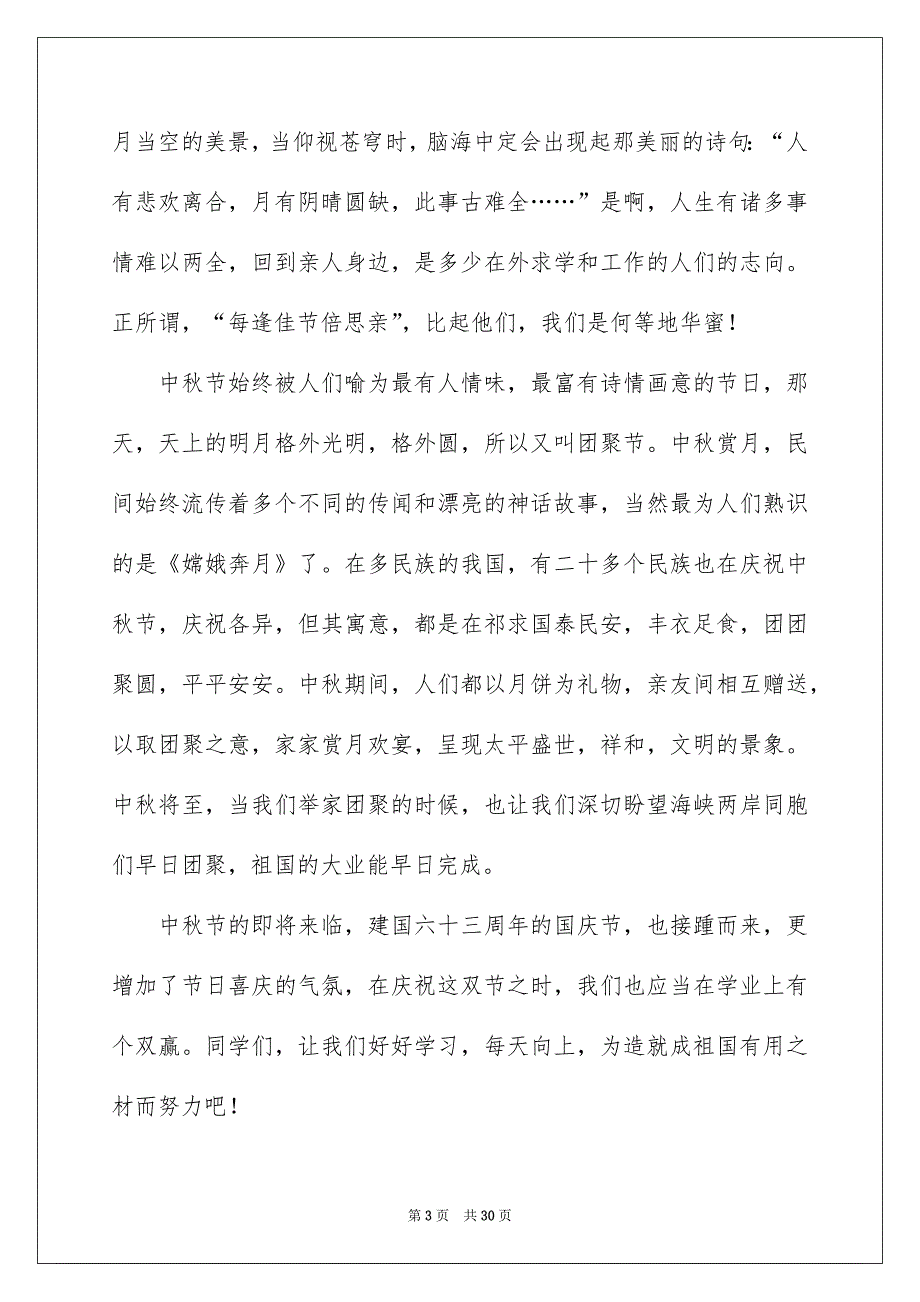 月当空的美景，当仰视苍穹时，脑海中定会出现起那美丽的诗句：“人
有悲欢离合，月有阴晴圆缺，此事古难全……”是啊，人生有诸多事
情难以两全，回到亲人身边，是多少在外求学和工作的人们的志向。
正所谓，“每逢佳节倍思亲”，比起他们，我们是何等地华蜜！
中秋节始终被人们喻为最有人情味，最富有诗情画意的节日，那
天，天上的明月格外光明，格外圆，所以又叫团聚节。中秋赏月，民
间始终流传着多个不同的传闻和漂亮的神话故事，当然最为人们熟识
的是《嫦娥奔月》了。在多民族的我国，有二十多个民族也在庆祝中
秋节，庆祝各异，但其寓意，都是在祁求国泰民安，丰衣足食，团团
聚圆，平平安安。中秋期间，人们都以月饼为礼物，亲友间相互赠送，
以取团聚之意，家家赏月欢宴，呈现太平盛世，祥和，文明的景象。
中秋将至，当我们举家团聚的时候，也让我们深切盼望海峡两岸同胞
们早日团聚，祖国的大业能早日完成。
中秋节的即将来临，建国六十三周年的国庆节，也接踵而来，更
增加了节日喜庆的气氛，在庆祝这双节之时，我们也应当在学业上有
个双赢。同学们，让我们好好学习，每天向上，为造就成祖国有用之
材而努力吧！
第 3 页 共 30 页